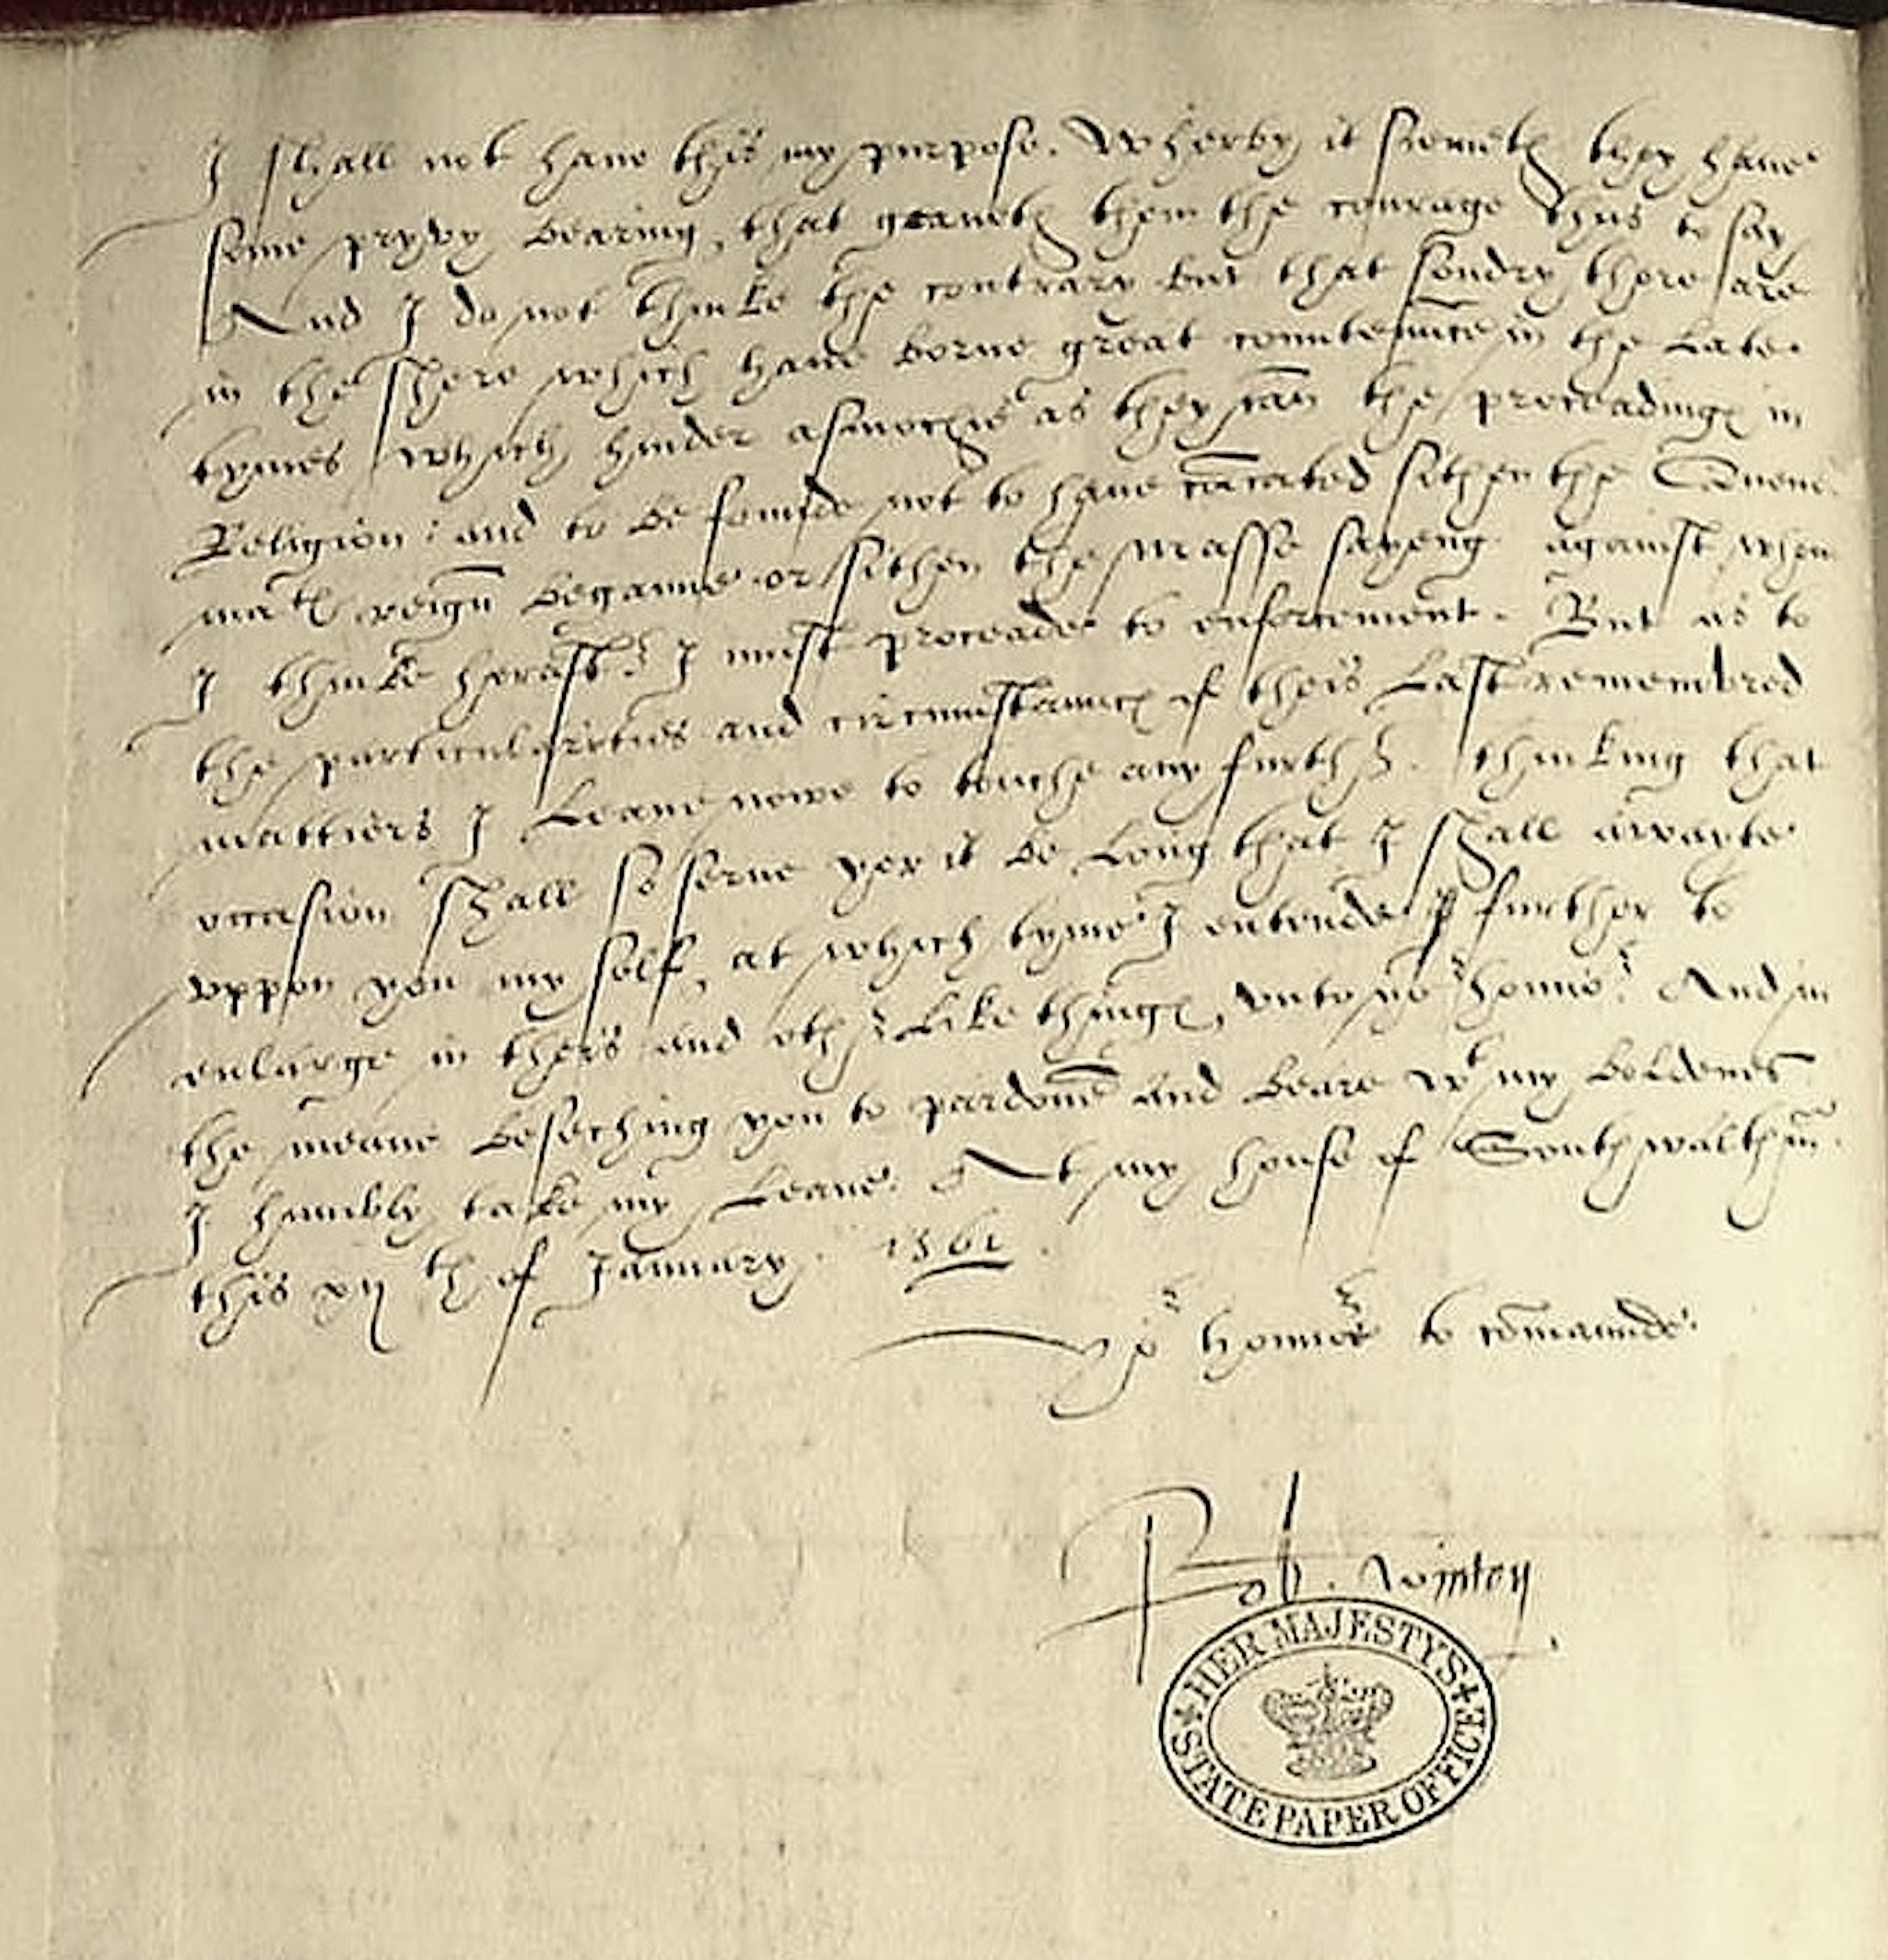 I shall not haue this my purpose. Wherby it semeth they haue
some pryvy bearing, that geaueth them the courage thus to say
And I do not thinke the contrary but that sondry there are
in the shere which haue borne great countenñce in the late
tymes which hinder asmoche as they cañ the proceadings in
Religion: and to be founde not to haue cõicated sithen the Quene
matꝭ reigñ beganne or sithen the Masse sayeng against whom
I thinke heraftr I must proceade to enforcement. But as to
the particularities and circumstaunces of theis last remembred
mattiers I leaue nowe to touche any furthr. thinking that
occasion shall so serue yer it be long that I shall awayte
vppon you my self, at which tyme I entende further to
enlarge in theis and othr like things, vnto yor honnor. And in
the meane beseching you to pardoñe and beare wt my boldenes
I humbly take my leaue. At my house of Southwalthm̃
this xij th of January. 1561.
yor honnor to cõmaunde.
Rob. winton
HER MAJESTYS
STATE PAPER OFFICE